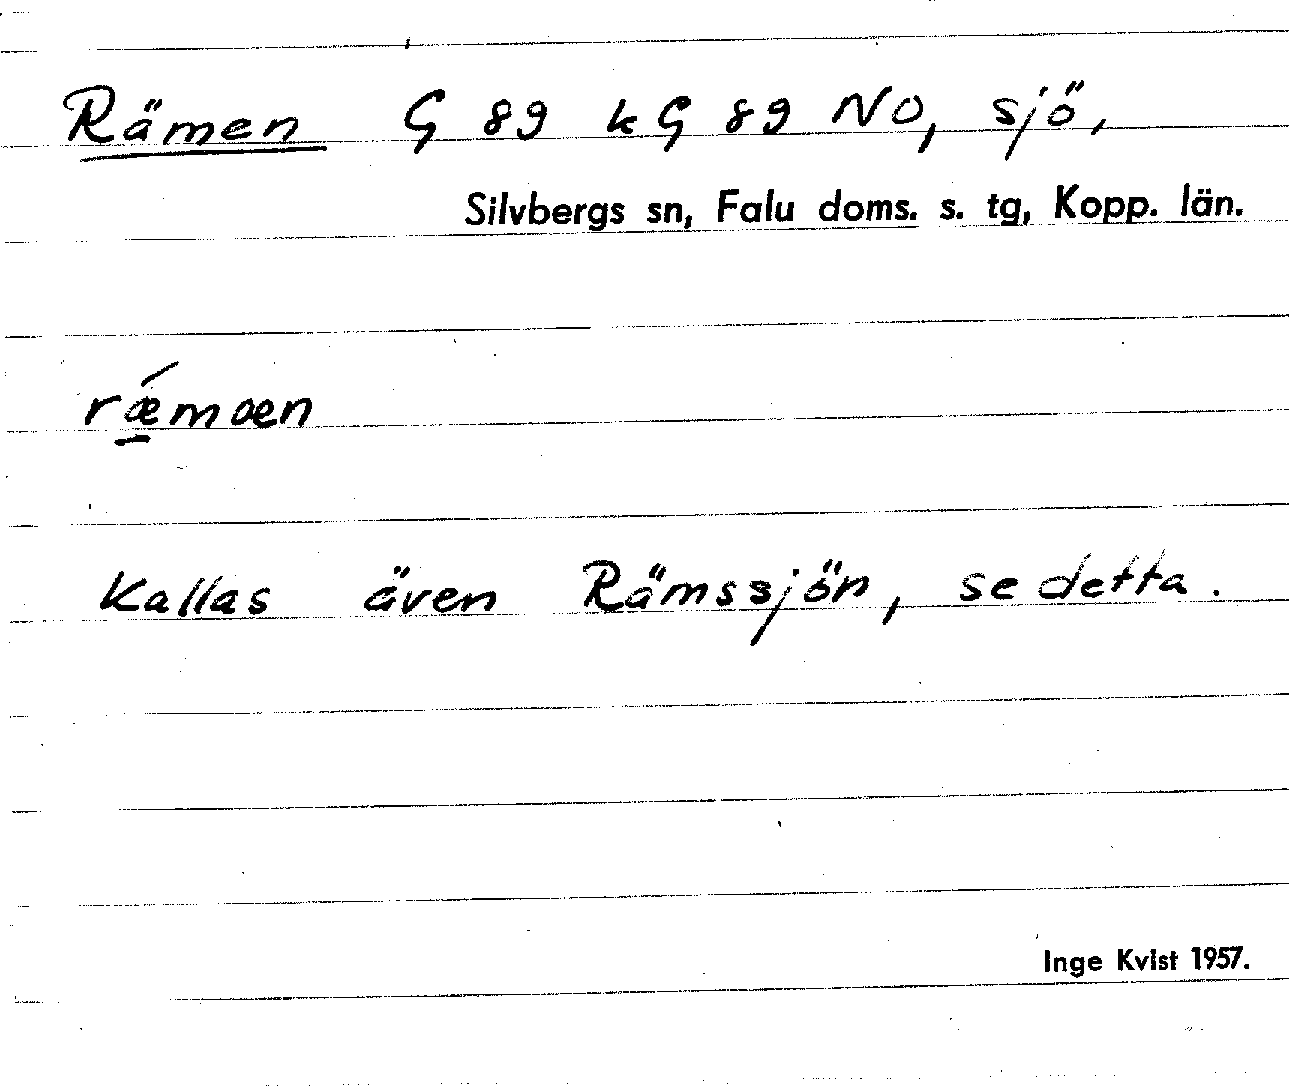 Rämen G 89 k G 89 NO, sjö,
Silvbergs sn, Falu doms. s. tg, Kopp. län.
rǽ̱mæn
Kallas även Rämssjön, se detta.
Inge Kvist 1957.